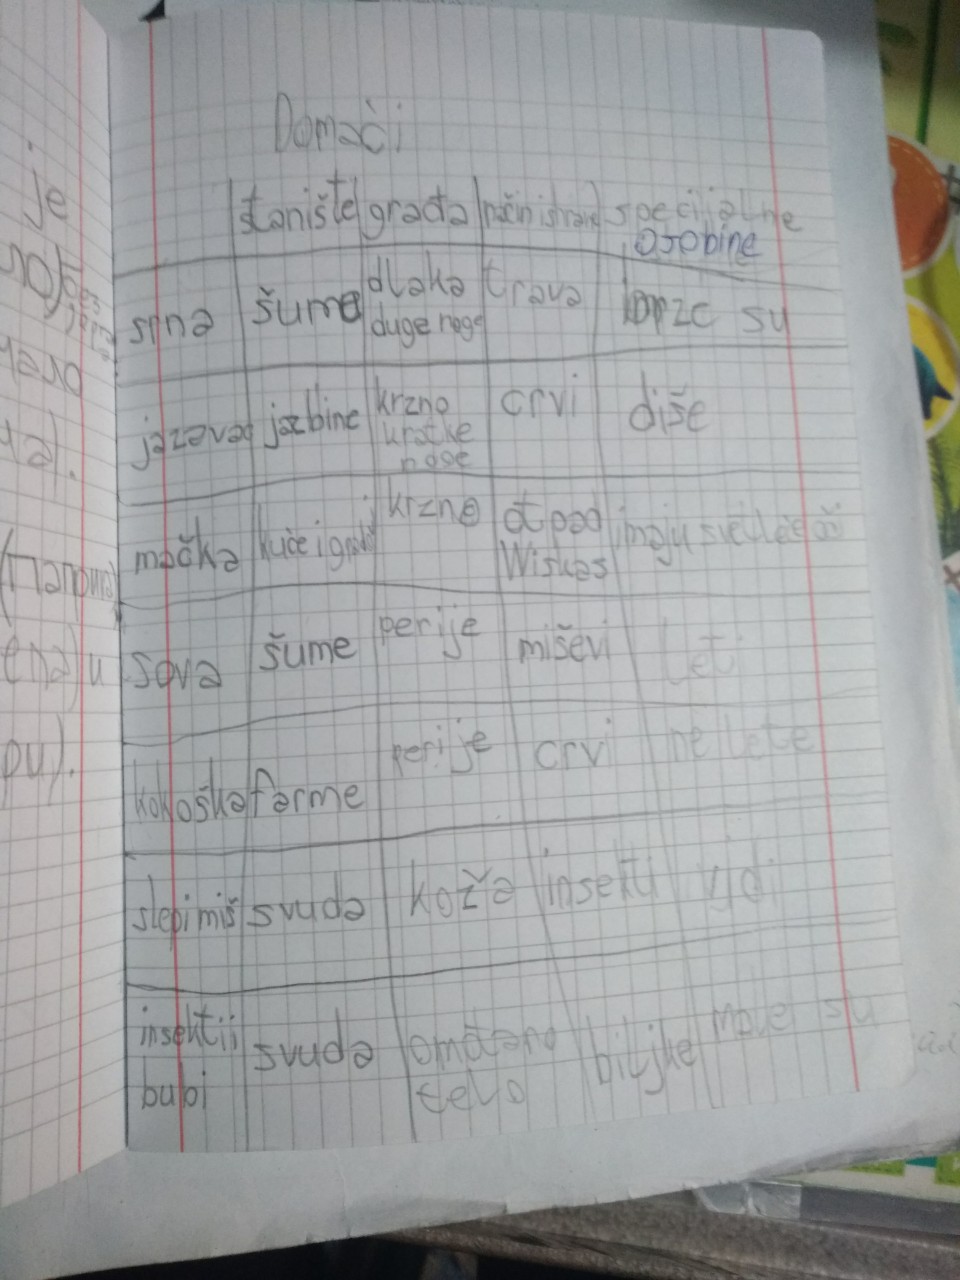 Domaći
stanište građa način ishrane specijalne
osobine
srna šume dlaka duge noge trava brze su
jazavac jazbine krzno kratke noge crvi diše
mačka kuće i grad krzno otpad Wiskas imaju svetleće oči
sova šume perije miševi leti
kokoška farme perije crvi ne lete
slepi miš svuda koža insekti vidi
insektii bubi svuda omotano telo biljke male su
je